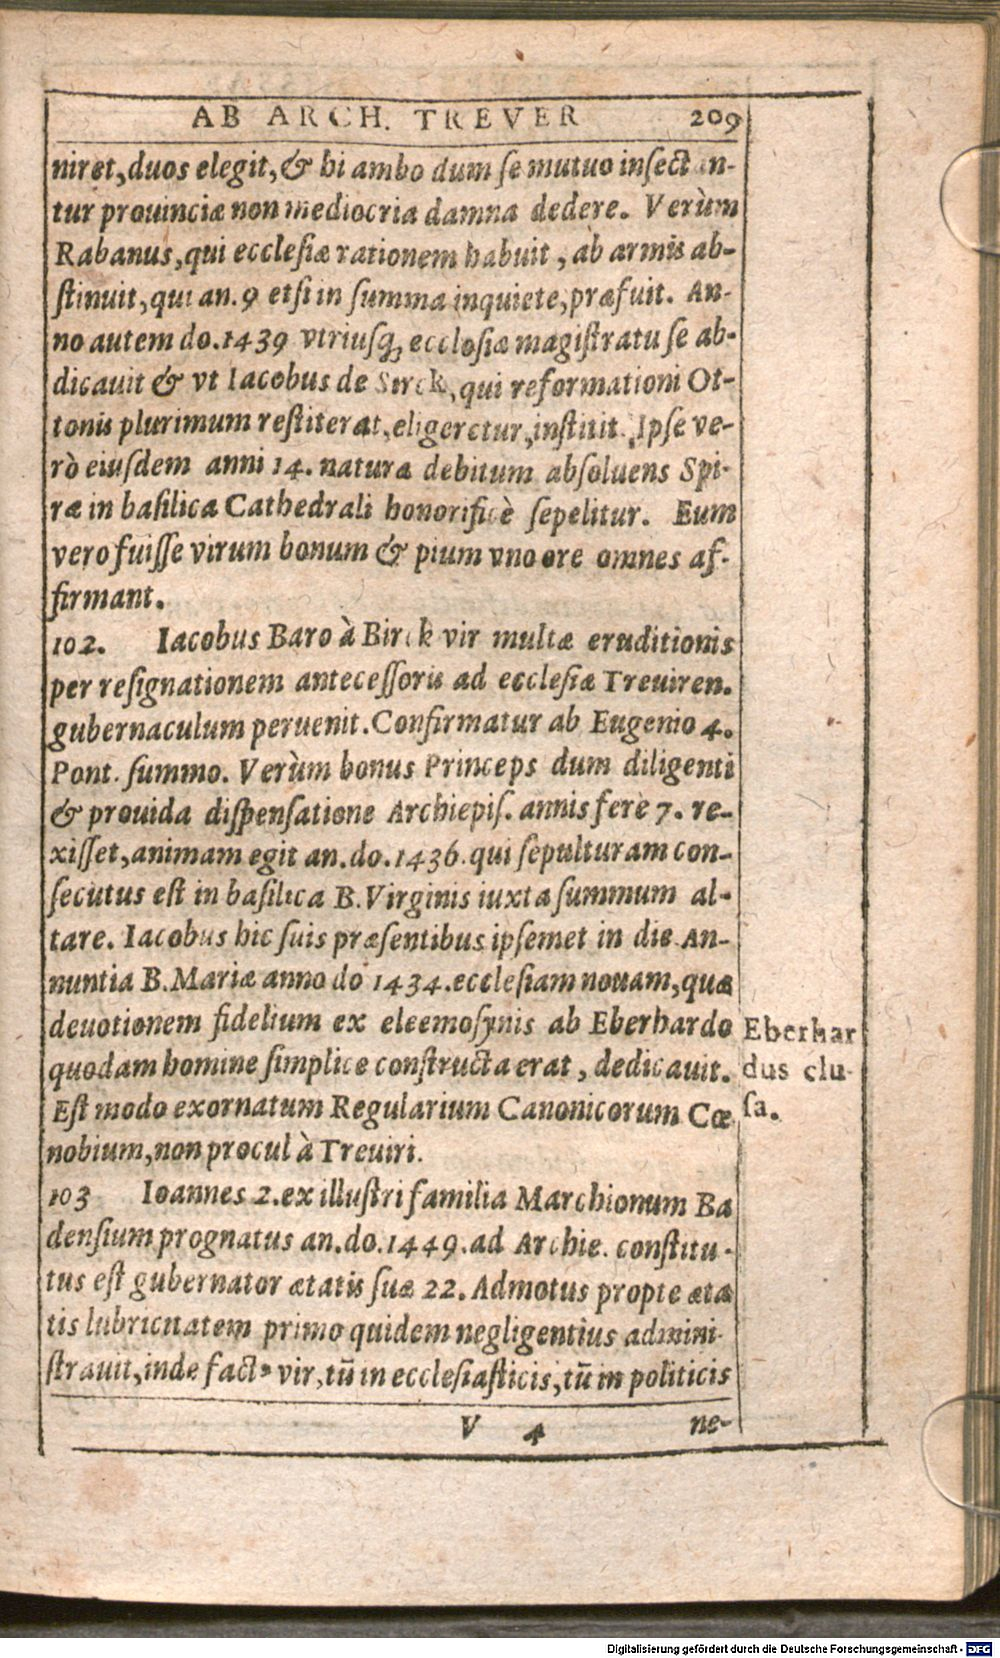 AB ARCH. TREVER 209
niret, duos elegit, & hi ambo dum se mutuo insectan-
tur prouinciæ non mediocria damna dedere. Verùm
Rabanus, qui ecclesiæ rationem habuit, ab armis ab-
stinuit, qui an. 9 etsi in summa inquiete, præfuit. An-
no autem do. 1439 vtriusq; ecclesiæ magistratu se ab-
dicauit & vt Iacobus de Sirck, qui reformationi Ot-
tonis plurimum restiterat, eligeretur, institit. Ipse ve-
rò eiusdem anni 14. natura debitum absoluens Spi-
ræ in basilica Cathedrali honorificè sepelitur. Eum
vero fuisse virum bonum & pium vno ore omnes af-
firmant.
102. Iacobus Baro à Birck vir multæ eruditionis
per resignationem antecessoris ad ecclesiæ Treuiren.
gubernaculum peruenit. Confirmatur ab Eugenio 4.
Pont. summo. Verùm bonus Princeps dum diligenti
& prouida dispensatione Archiepis. annis ferè 7. re-
xisset, animam egit an. do. 1436. qui sepulturam con-
secutus est in basilica B. Virginis iuxta summum al-
tare. Iacobus hic suis præsentibus ipsemet in die An-
nuntia B. Mariæ anno do 1434. ecclesiam nouam, quæ
deuotionem fidelium ex eleemosynis ab Eberhardo
quodam homine simplice constructa erat, dedicauit.
Est modo exornatum Regularium Canonicorum Cœ
nobium, non procul à Treuiri.
Eberhar
dus clu-
sa.
103 Ioannes 2. ex illustri familia Marchionum Ba
densium prognatus an. do. 1449. ad Archie. constitu-
tus est gubernator ætatis suæ 22. Admotus propte æta
tis lubricitatem primo quidem negligentius admini-
strauit, inde factꝰ vir, tū in ecclesiasticis, tū in politicis
V 4 ne-
Digitalisierung gefördert durch die Deutsche Forschungsgemeinschaft - DFG